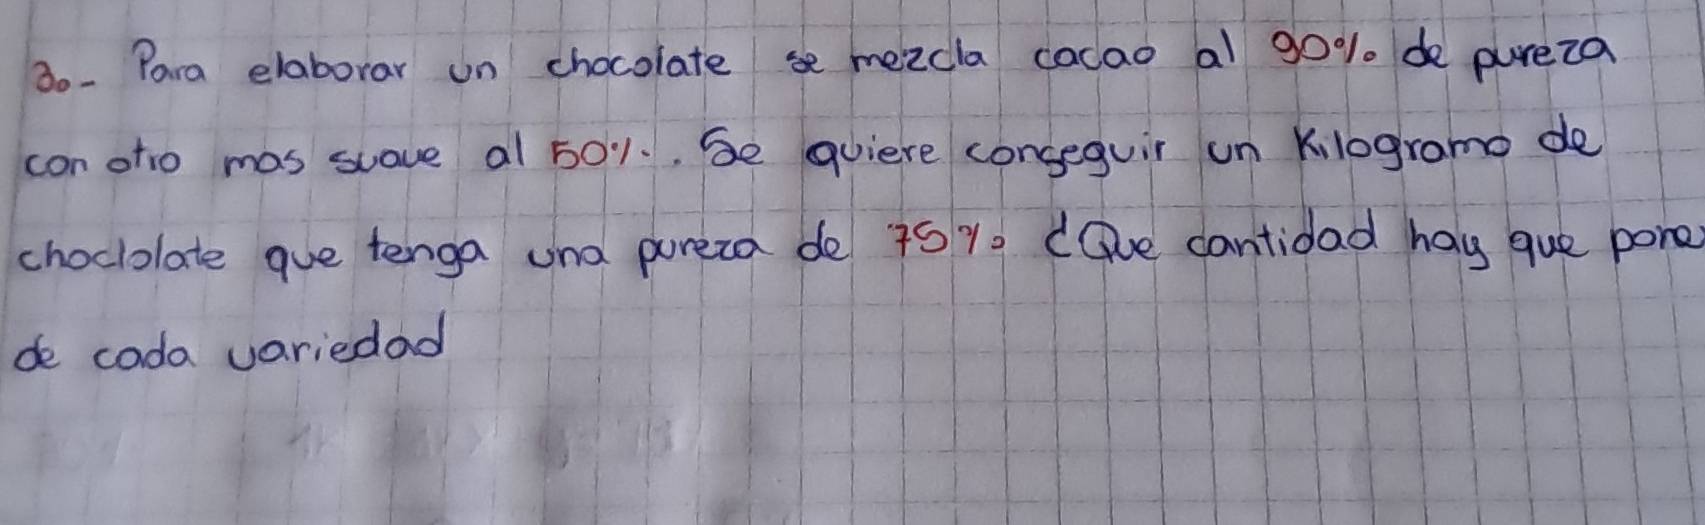 3o- Para elaborar un chocolate se mezcla cacao al 90% de pureza
con otro mas suave al 50%. Se quiere conseguir un Kilogramo de
choclolate que tenga una pureza de 75% ¿Que cantidad hay que pone
de cada variedad